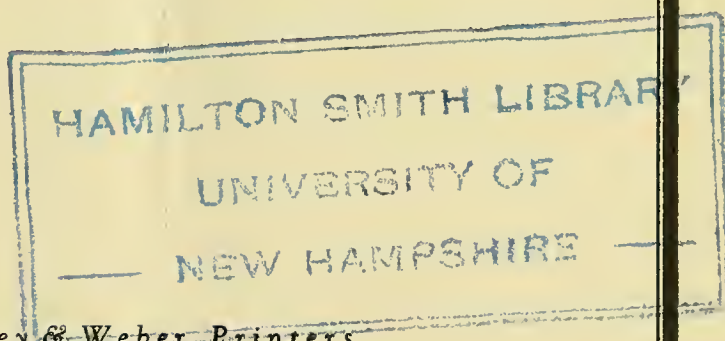 HAMILTON SMITH LIBRARY
UNIVERSITY OF
NEW HAMPSHIRE
& Weber Printers